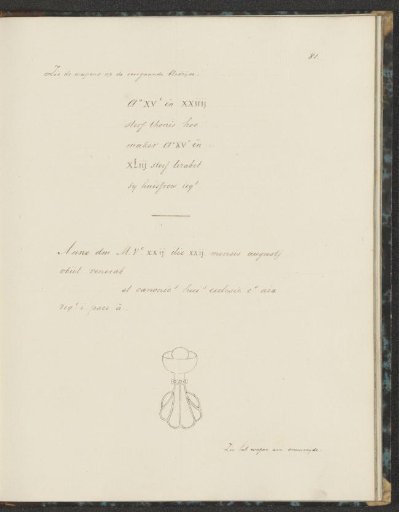 81.
Zie de wapens op de omgaande bladzijde.
Aº XVᶜ en XXIIIJ
sterf thonis hoe
maker Aº XVᶜ en
XLIIJ sterf lisabet
sy huisfrow
Anno dm M.Vᶜ XXIJ die XXIJ mensis augustj
obiit venerab
et canonicꝰ huiꝰ ecclesie
i pace
Zie het wapen aan ommezijde.